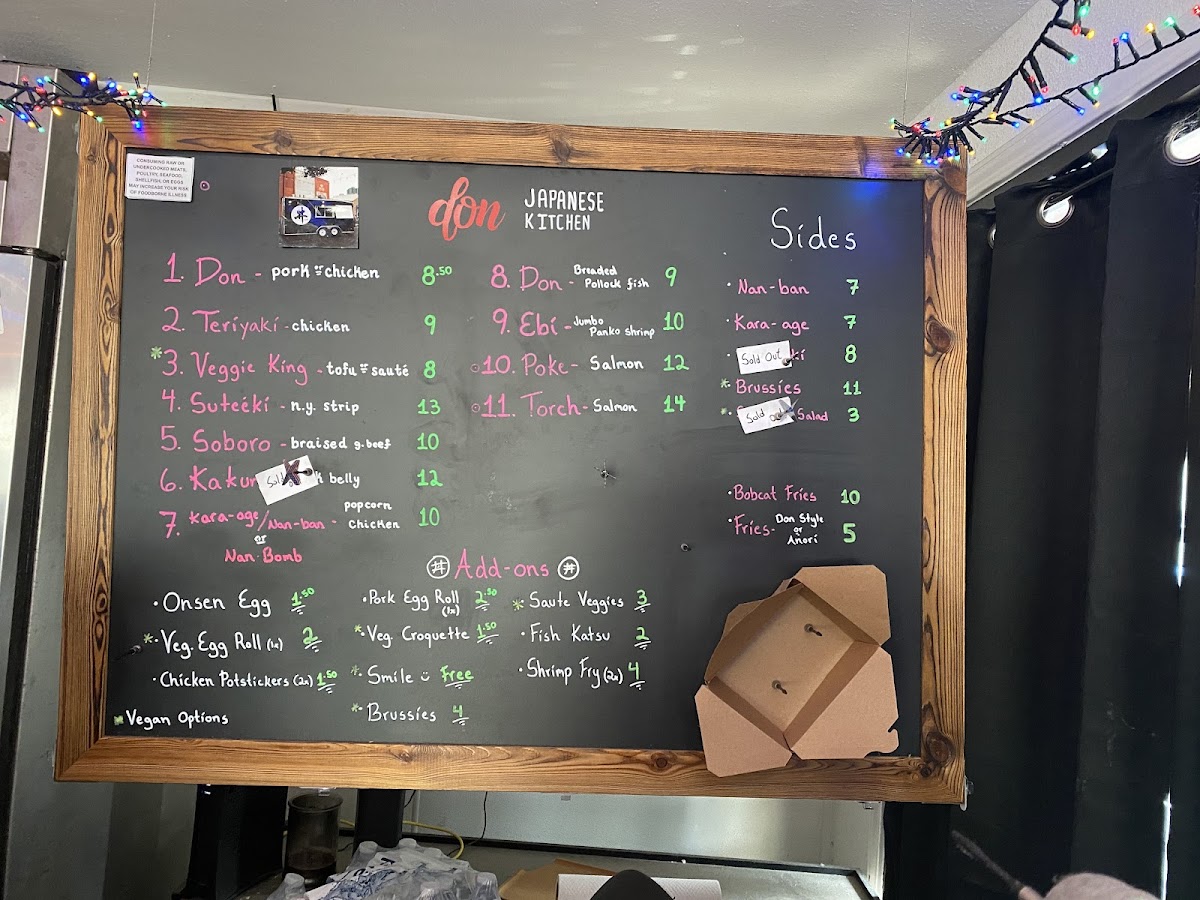 CONSUMING RAW OR
UNDERCOOKED MEATS,
POULTRY, SEAFOOD,
SHELLFISH, OR EGGS
MAY INCREASE YOUR RISK
OF FOODBORNE ILLNESS
don JAPANESE
KITCHEN
1. Don - pork or chicken 8.50
2. Teriyaki - chicken 9
*3. Veggie King - tofu or sauté 8
4. Suteēki - n.y. strip 13
5. Soboro - braised g.beef 10
6. Kaku belly 12
7. Kara-age/Nan-ban - popcorn chicken 10
or
Nan-Bomb
8. Don - Breaded Pollock fish 9
9. Ebi - Jumbo Panko shrimp 10
10. Poke - Salmon 12
11. Torch - Salmon 14
Sides
· Nan-ban 7
· Kara-age 7
· Sold Out ki 8
* Brussies 11
* Sold out Salad 3
· Bobcat Fries 10
· Fries - Don Style or Anori 5
Add-ons
· Onsen Egg 1.50
* Veg. Egg Roll (1x) 2
· Chicken Potstickers (2x) 1.50
* Vegan Options
· Pork Egg Roll (1x) 2.50
* Veg. Croquette 1.50
* Smile Free
* Brussies 4
* Saute Veggies 3
· Fish Katsu 2
· Shrimp Fry (2x) 4